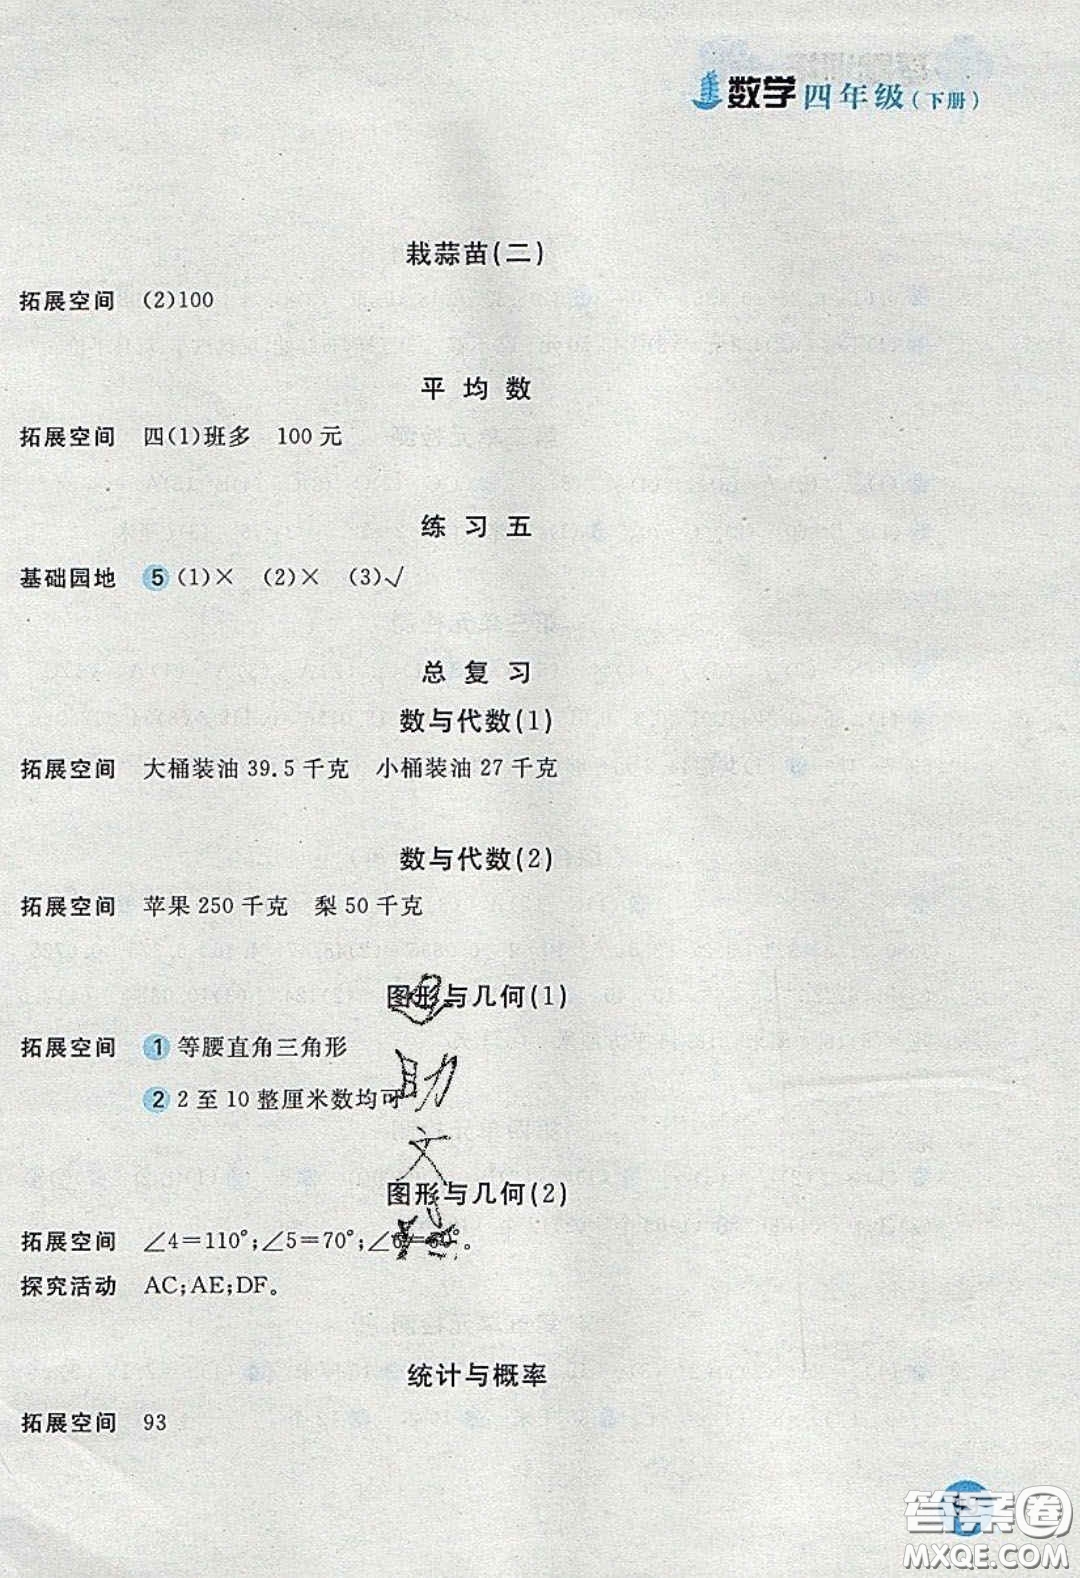 数学 四年级(下册)
栽蒜苗(二)
拓展空间 (2)100
平均数
拓展空间 四(1)班多 100元
练习五
基础园地 5 (1)× (2)× (3)√
总复习
数与代数(1)
拓展空间 大桶装油39.5千克 小桶装油27千克
数与代数(2)
拓展空间 苹果250千克 梨50千克
图形与几何(1)
拓展空间 1 等腰直角三角形
2 2至10整厘米数均可
助
文
图形与几何(2)
拓展空间 ∠4=110°;∠5=70°;∠6=60°。
探究活动 AC;AE;DF。
统计与概率
拓展空间 93
答案圈
MXQE.COM